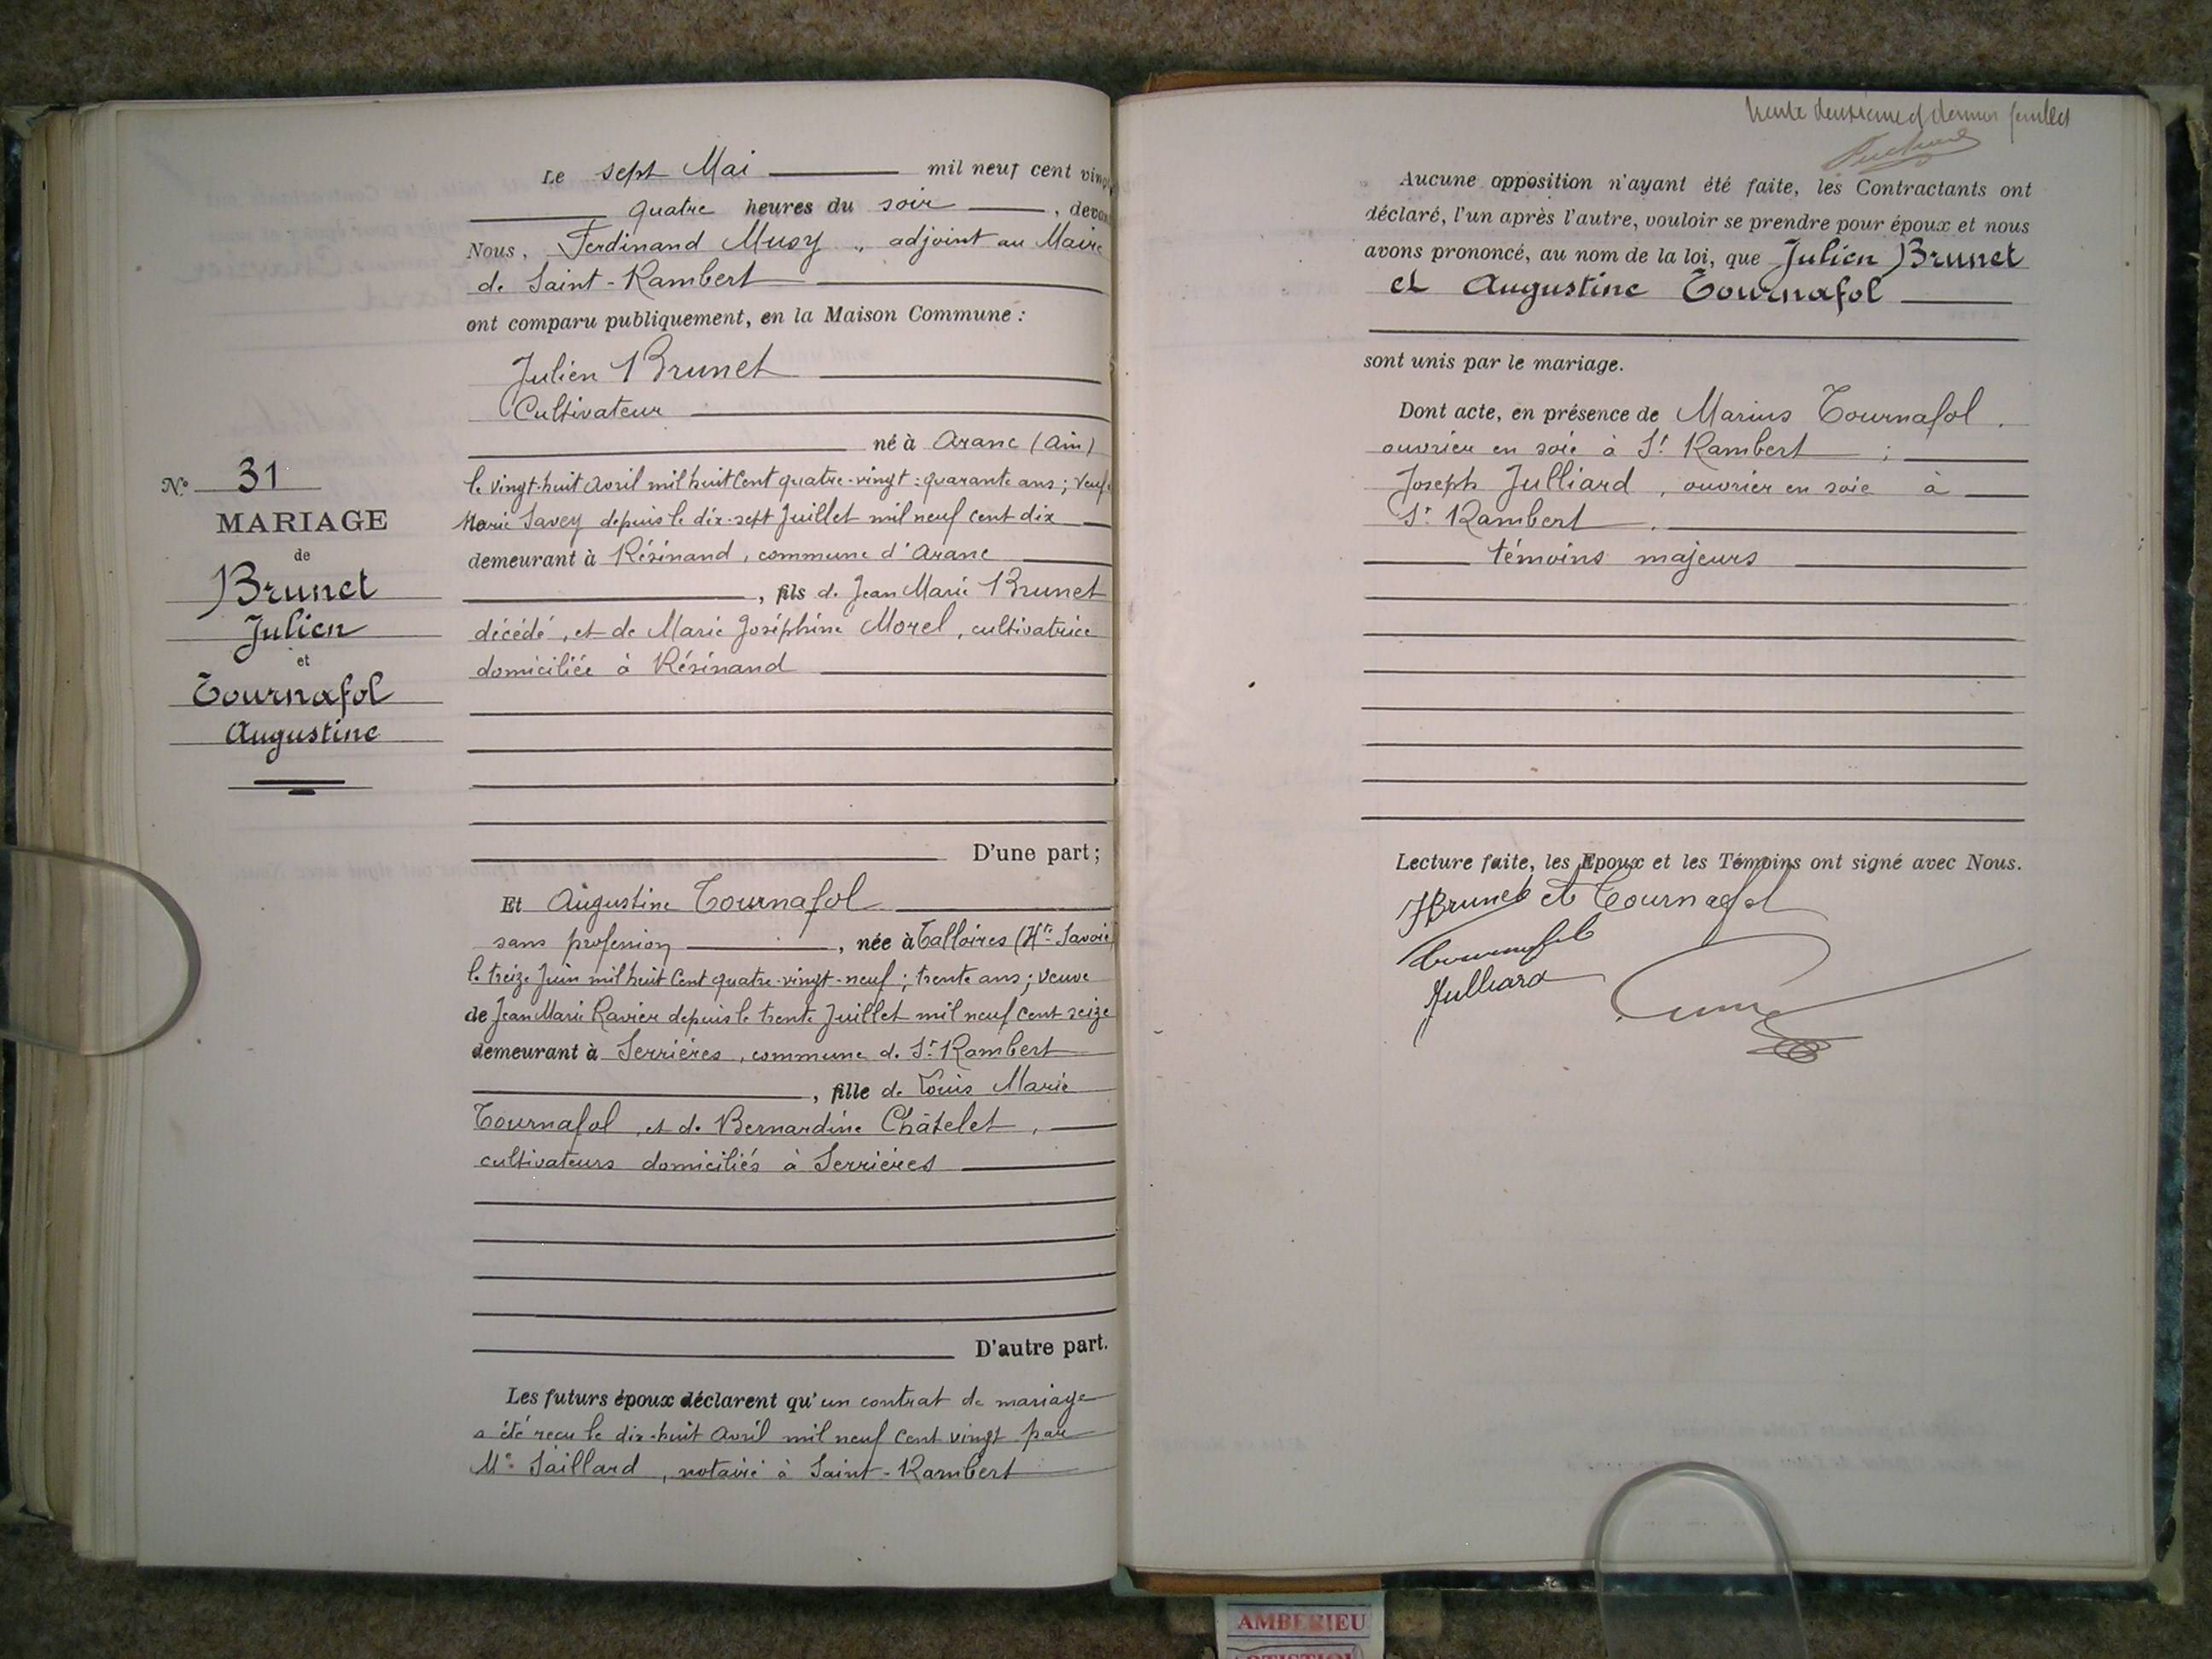 Le sept Mai mil neuf cent vingt
quatre heures du soir, devant
Nous, Ferdinand Musy, adjoint au Maire
de Saint-Rambert
ont comparu publiquement, en la Maison Commune :
Julien Brunet
Cultivateur
né à Aranc (Ain)
le vingt-huit Avril mil huit Cent quatre-vingt : quarante ans ; veuf de
Marie Savey depuis le dix-sept Juillet mil neuf cent dix
demeurant à Résinand, commune d'Aranc
, fils de Jean Marie Brunet
décédé, et de Marie Joséphine Morel, cultivatrice
domiciliée à Résinand
D'une part ;
N° 31
MARIAGE
de
Brunet
Julien
et
Tournafol
Augustine
Et Augustine Tournafol
sans profession, née à Talloires (Hte Savoie)
le treize Juin mil huit Cent quatre-vingt-neuf ; trente ans ; veuve
de Jean Marie Ravier depuis le trente Juillet mil neuf cent seize
demeurant à Serrières, commune de St Rambert
, fille de Louis Marie
Tournafol, et de Bernardine Châtelet,
cultivateurs domiciliés à Serrières
D'autre part.
Les futurs époux déclarent qu'un contrat de mariage
a été reçu le dix-huit Avril mil neuf Cent vingt par
Me Saillard, notaire à Saint-Rambert
trente deuxième et dernier feuillet
Aucune opposition n'ayant été faite, les Contractants ont
déclaré, l'un après l'autre, vouloir se prendre pour époux et nous
avons prononcé, au nom de la loi, que Julien Brunet
et Augustine Tournafol
sont unis par le mariage.
Dont acte, en présence de Marius Tournafol,
ouvrier en soie à St Rambert ;
Joseph Julliard, ouvrier en soie à
St Rambert.
témoins majeurs
Lecture faite, les Epoux et les Témoins ont signé avec Nous.
JBrunet et Tournafol
Tournafol
Julliard
AMBERIEU